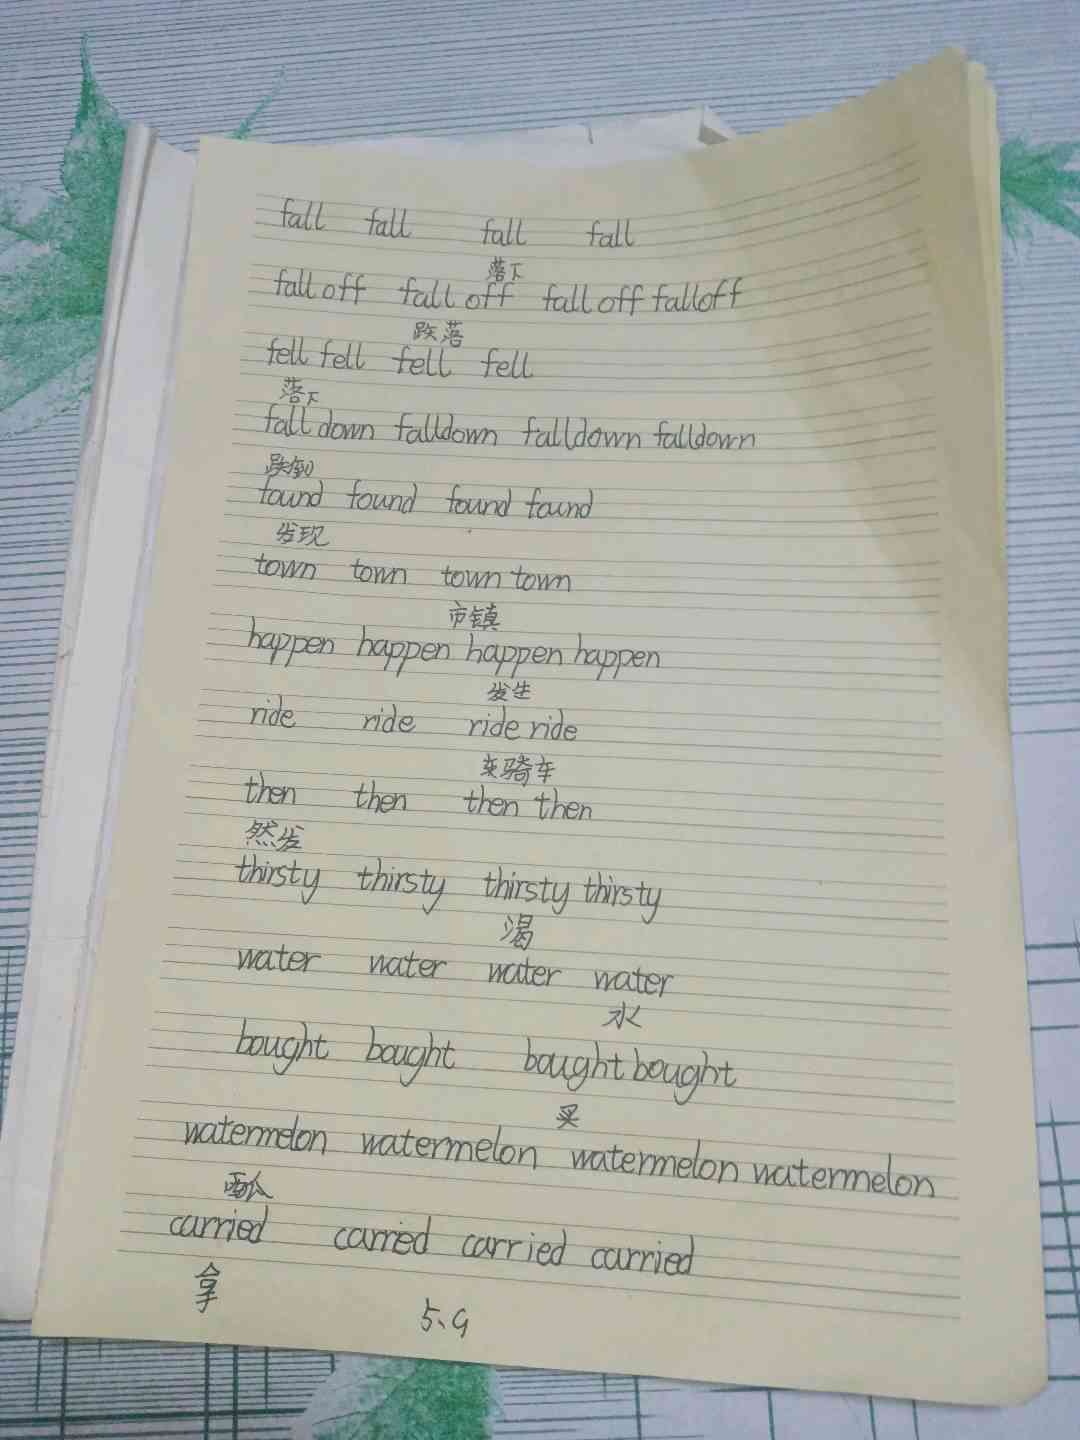 fall fall fall fall
落下
fall off fall off fall off falloff
跌落
fell fell fell fell
落下
fall down falldown falldown falldown
跌倒
found found found found
发现
town town town town
市镇
happen happen happen happen
发生
ride ride ride ride
乘骑车
then then then then
然发
thirsty thirsty thirsty thirsty
渴
water water water water
水
bought bought bought bought
买
watermelon watermelon watermelon watermelon
西瓜
carried carried carried carried
拿
5、9